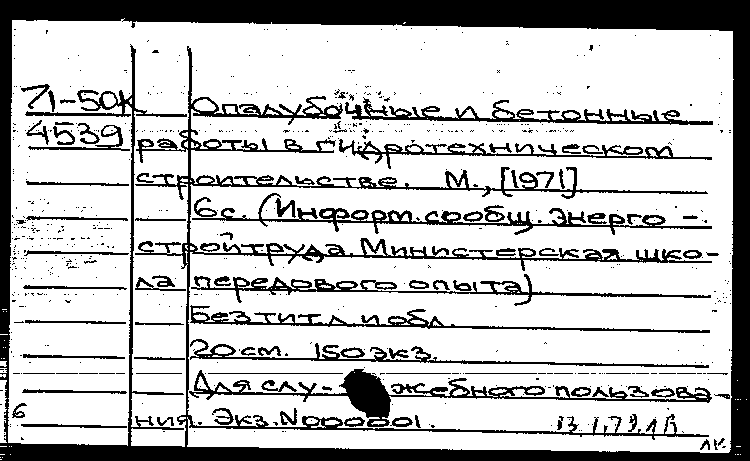 71-50К Опалубочные и бетонные
4539 работы в гидротехническом
строительстве. М., [1971]
6с. (Информ. сообщ. Энерго -
стройтруда. Министерская шко-
ла передового опыта)
Без тит. л. и обл.
20 см. 150 экз.
Для слу- жебного пользова-
6 ния. Экз. N000001.
лк